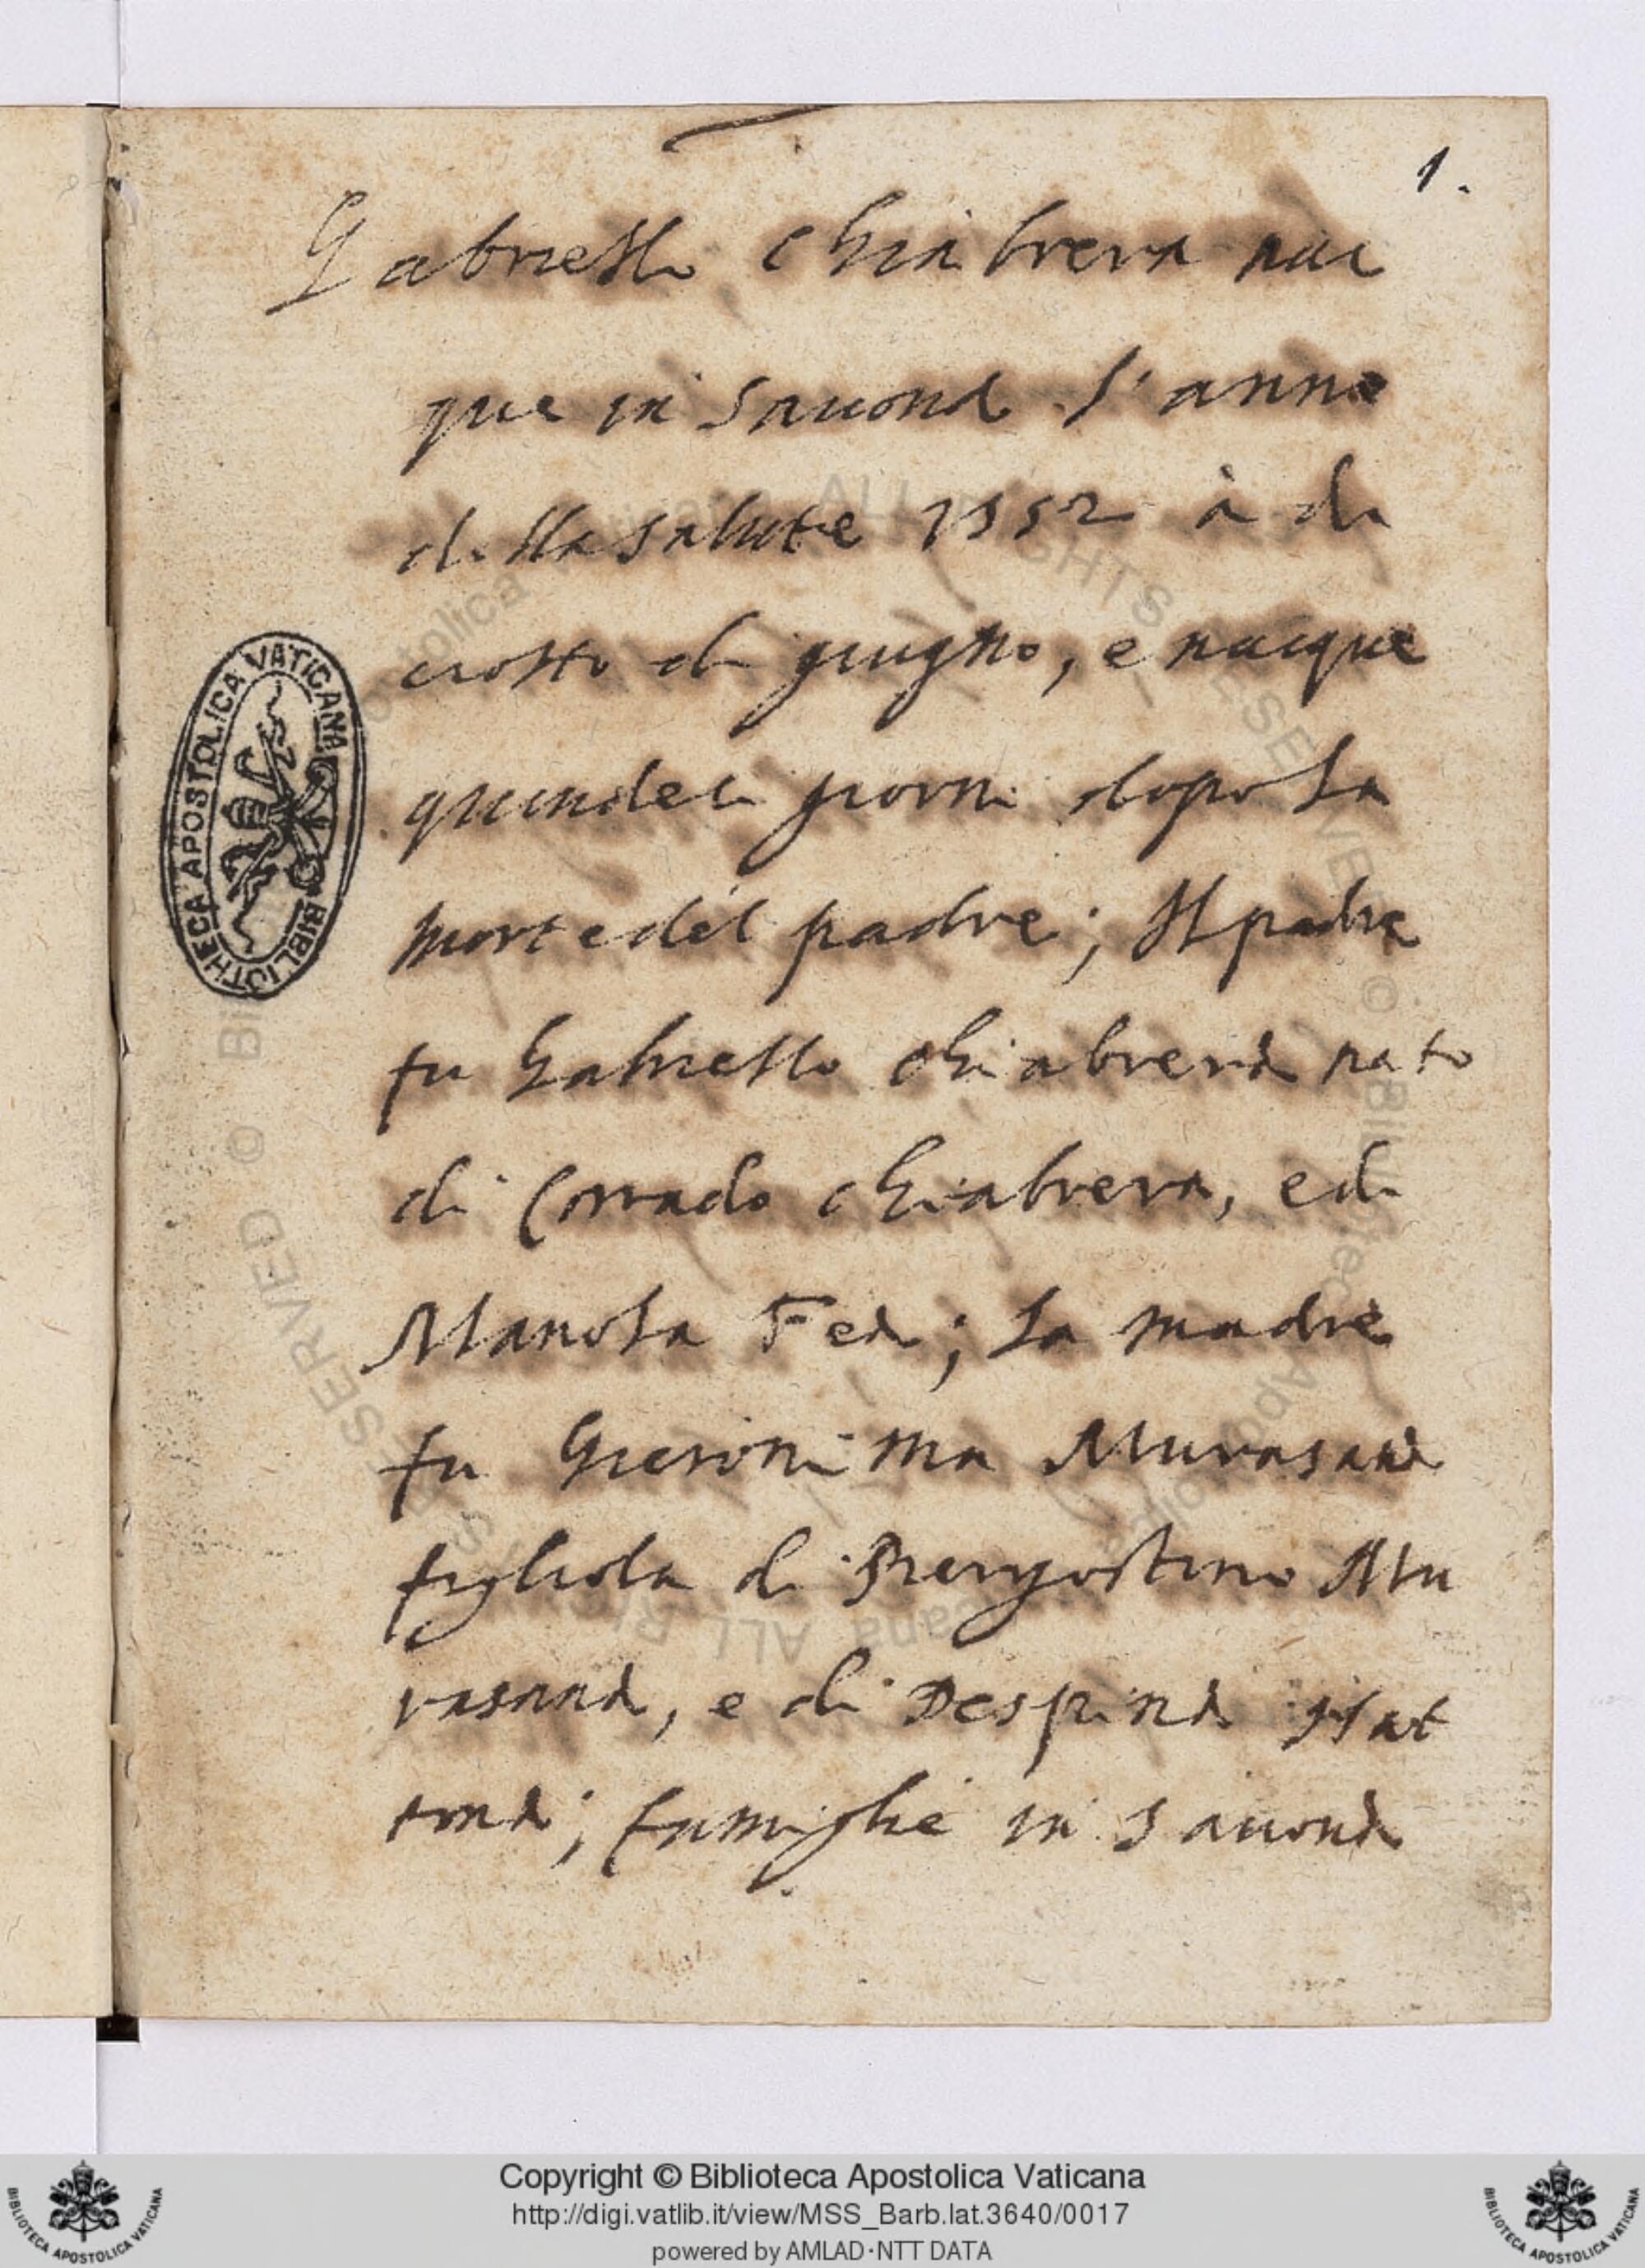 1.
Gabriello Chiabrera nac
que in Sauona l'anno
della salute 1552 à di
ciotto di giugno, e nacque
quindeci giorni dopo la
morte del padre; Il padre
fu Gabriello Chiabrera nato
di Corrado Chiabrera, e di
Mariola Fea; la madre
fu Gieronima Murasana
figliola di Piergostino Mu
rasana, e di Despina Nat
tona; famiglie in Sauona
BIBLIOTHECA APOSTOLICA VATICANA
© Biblioteca Apostolica Vaticana ALL RIGHTS RESERVED © Biblioteca Apostolica Vaticana ALL RIGHTS RESERVED
Copyright © Biblioteca Apostolica Vaticana
http://digi.vatlib.it/view/MSS_Barb.lat.3640/0017
powered by AMLAD·NTT DATA
BIBLIOTECA APOSTOLICA VATICANA
BIBLIOTECA APOSTOLICA VATICANA